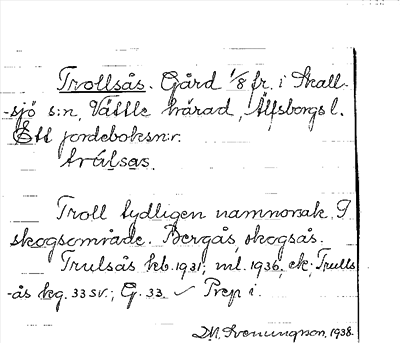 Trollsås. Gård 1/8 fr. i Skall-
-sjö s:n, Vättle härad, Älfsborgs l.
Ett jordeboksn:r.
Troll tydligen namnorsak. I
skogsområde. Bergås, skogsås.
Trulsås kb. 1931; ml. 1936, ek; Trulls-
-ås kg. 33 sv.; G. 33. ✓ Prep i.
D.M. Svenungson, 1938.